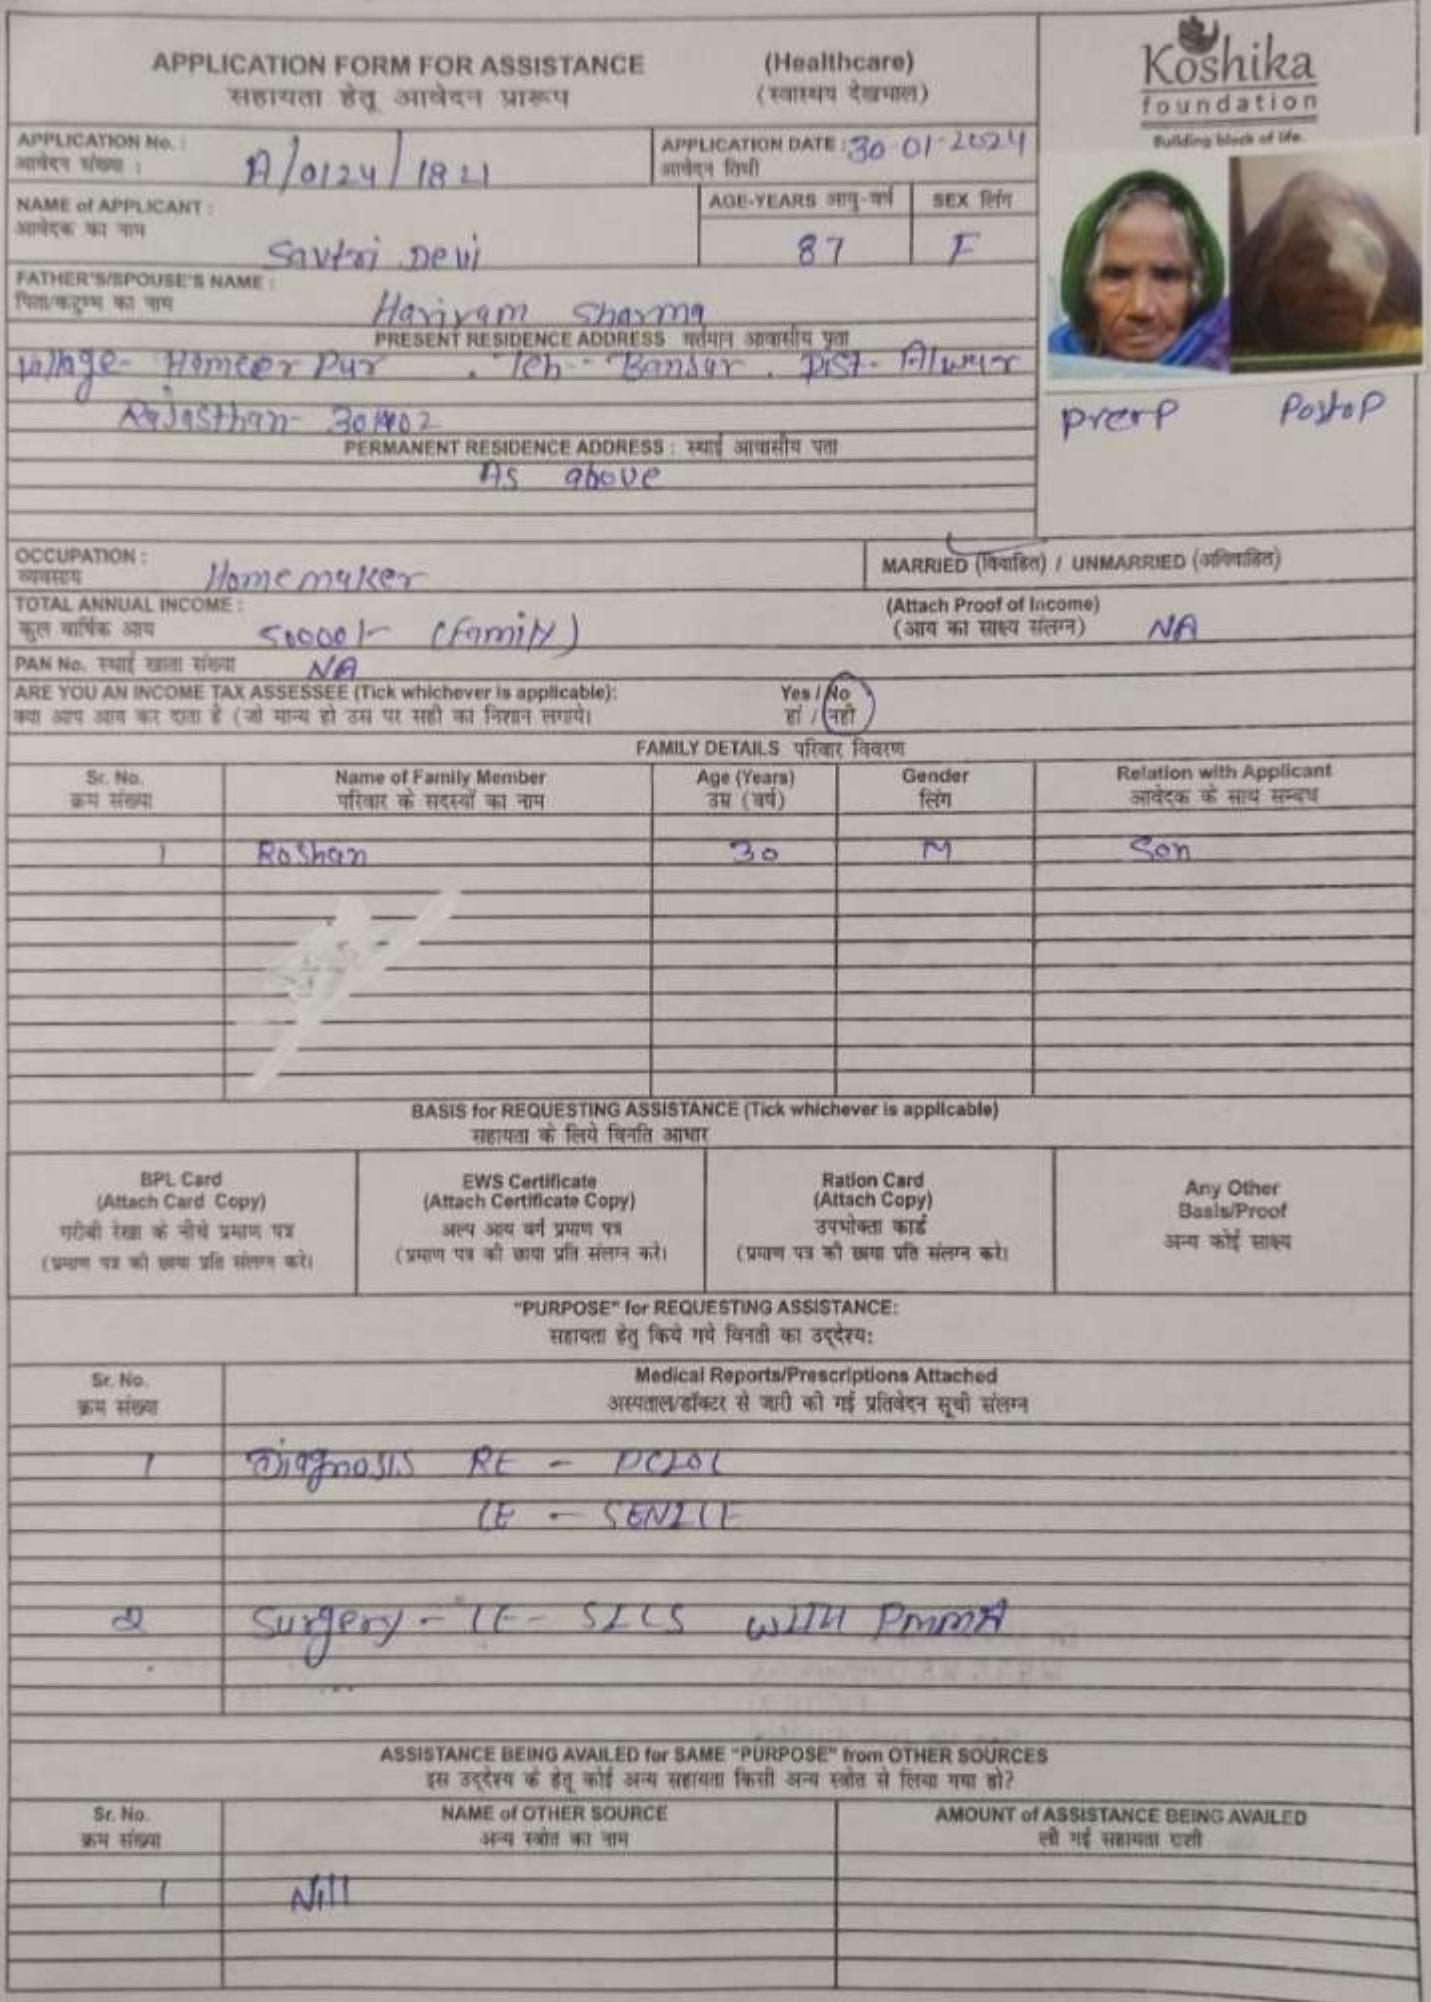 APPLICATION FORM FOR ASSISTANCE (Healthcare)
सहायता हेतू आवेदन प्रारूप (स्वास्थय देखभाल)
Koshika
foundation
Building block of life.
APPLICATION No. : A/0124/1821
आवेदन संख्या :
APPLICATION DATE : 30-01-2024
आवेदन तिथी
NAME of APPLICANT : Savtri Devi
आवेदक का नाम
AGE-YEARS आयु-वर्ष 87
SEX लिंग F
FATHER'S/SPOUSE'S NAME : Hariram Sharma
पिता/कटुम्ब का नाम
PRESENT RESIDENCE ADDRESS वर्तमान आवासीय पता
Village- Hameer Pur . Teh- Bansur . Dist- Alwar
Rajasthan- 301402
PERMANENT RESIDENCE ADDRESS : स्थाई आवासीय पता
As above
Preop Postop
OCCUPATION : Homemaker
व्यवसाय
MARRIED (विवाहित) / UNMARRIED (अविवाहित)
TOTAL ANNUAL INCOME : 50000/- (family)
कुल वार्षिक आय
(Attach Proof of Income) NA
(आय का साक्ष्य संलग्न)
PAN No. स्थाई खाता संख्या NA
ARE YOU AN INCOME TAX ASSESSEE (Tick whichever is applicable): Yes / No
क्या आप आय कर दाता है (जो मान्य हो उस पर सही का निशान लगाये। हां / नही
FAMILY DETAILS परिवार विवरण
Sr. No. Name of Family Member Age (Years) Gender Relation with Applicant
क्रम संख्या परिवार के सदस्यों का नाम उम्र (वर्ष) लिंग आवेदक के साथ सम्बंध
1 Roshan 30 M Son
BASIS for REQUESTING ASSISTANCE (Tick whichever is applicable)
सहायता के लिये विनति आधार
BPL Card
(Attach Card Copy)
गरीबी रेखा के नीचे प्रमाण पत्र
(प्रमाण पत्र की छाया प्रति संलग्न करे।
EWS Certificate
(Attach Certificate Copy)
अल्प आय वर्ग प्रमाण पत्र
(प्रमाण पत्र की छाया प्रति संलग्न करे।
Ration Card
(Attach Copy)
उपभोक्ता कार्ड
(प्रमाण पत्र की छाया प्रति संलग्न करे।
Any Other
Basis/Proof
अन्य कोई साक्ष्य
"PURPOSE" for REQUESTING ASSISTANCE:
सहायता हेतु किये गये विनती का उद्देश्य:
Sr. No. Medical Reports/Prescriptions Attached
क्रम संख्या अस्पताल/डॉक्टर से जारी की गई प्रतिवेदन सूची संलग्न
1 Diagnosis RE -
LE -
2 Surgery - LE - SICS WITH PMMA
ASSISTANCE BEING AVAILED for SAME "PURPOSE" from OTHER SOURCES
इस उद्देश्य के हेतू कोई अन्य सहायता किसी अन्य स्त्रोत से लिया गया हो?
Sr. No. NAME of OTHER SOURCE AMOUNT of ASSISTANCE BEING AVAILED
क्रम संख्या अन्य स्त्रोत का नाम ली गई सहायता राशी
1 Nill